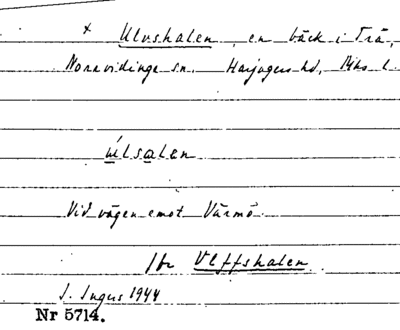 × Ulvshalen, en bäck i Trä,
Norrvidinge sn. Harjagers hd, Mhs l.
úlsalen
Vid vägen emot Värmö.
Jfr Ulffshalen.
I. Ingers 1944
Nr 5714.